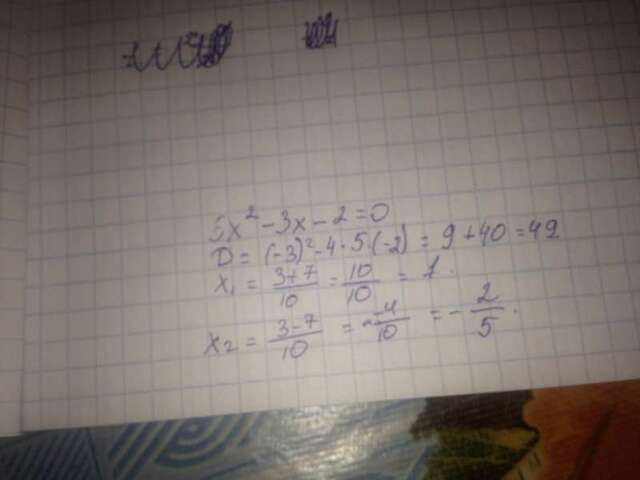 5x² - 3x - 2 = 0
D = (-3)² - 4 · 5 · (-2) = 9 + 40 = 49
x₁ = 3+7/10 = 10/10 = 1.
x₂ = 3-7/10 = -4/10 = -2/5.